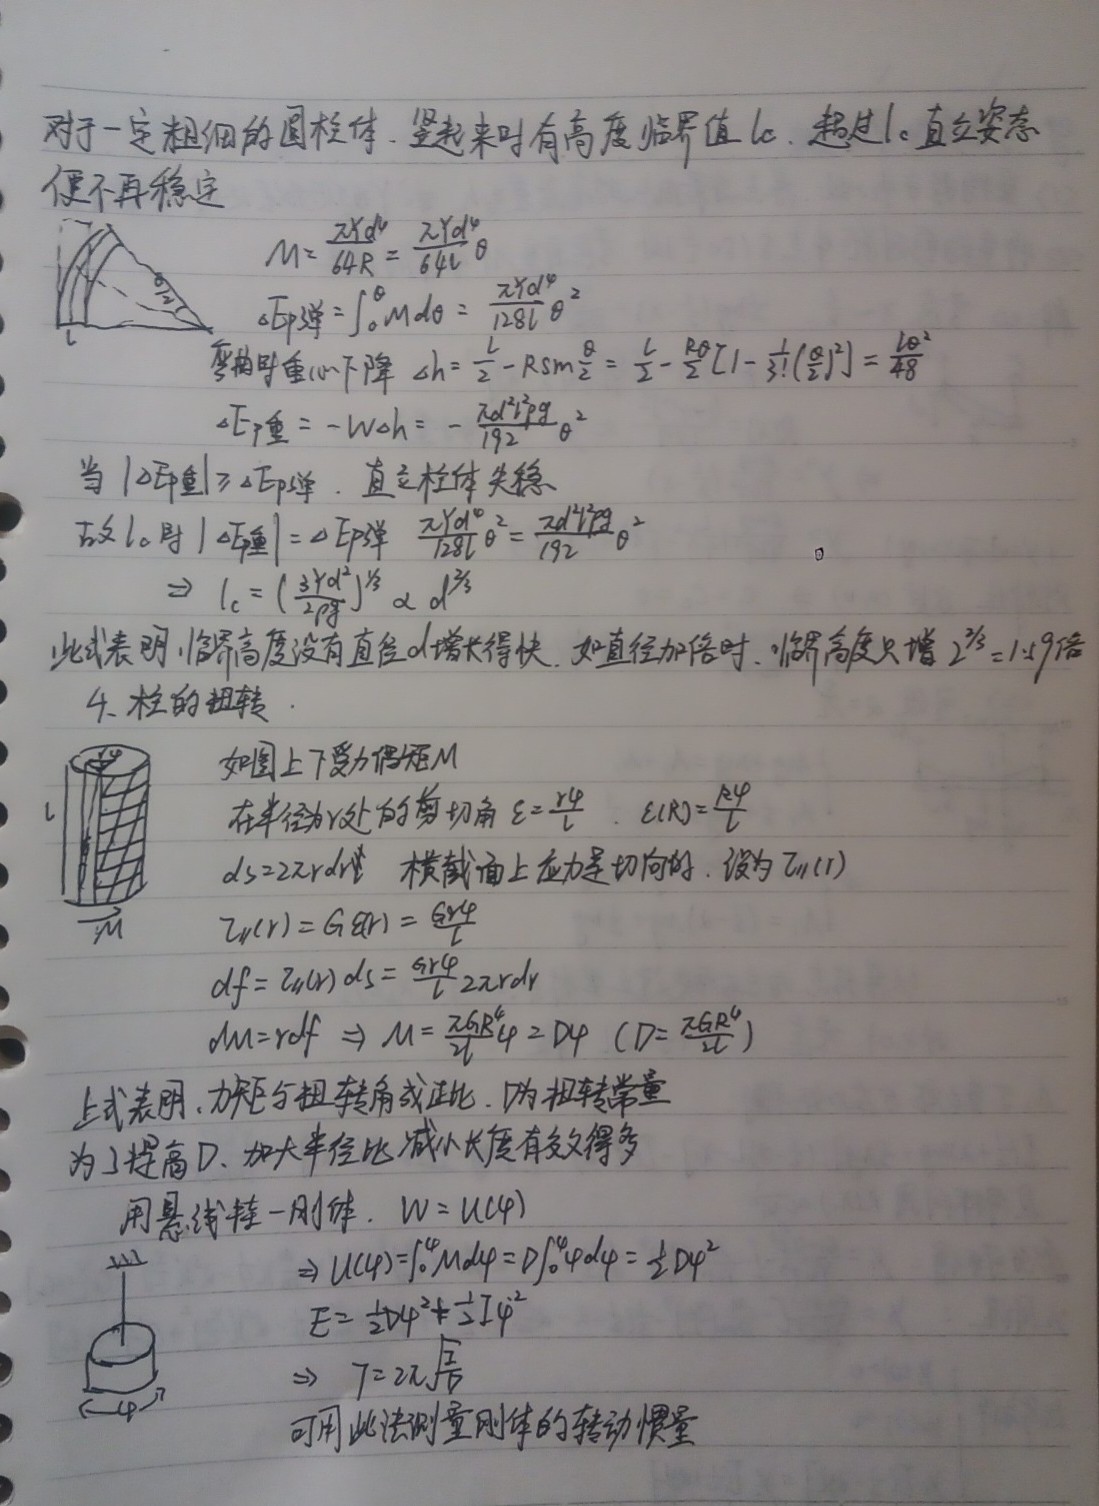 对于一定粗细的圆柱体、竖起来时有高度临界值 lc. 超过 lc 直立姿态
便不再稳定
M = πYd⁴/64R = πYd⁴/64l θ
θ/2
ΔEp弹 = ∫₀^θ M dθ = πYd⁴/128l θ²
l
弯曲时重心下降 Δh = l/2 - R sin θ/2 = l/2 - Rθ/2 [1 - 1/3! (θ/2)²] = lθ²/48
ΔEp重 = -WΔh = - πd²l²ρg/192 θ²
当 |ΔEp重| ≥ ΔEp弹 . 直立柱体失稳
故 lc 时 |ΔEp重| = ΔEp弹 πYd⁴/128l θ² = πd²l²ρg/192 θ²
⇒ lc = (3Yd²/2ρg)^1/3 ∝ d^2/3
此式表明,临界高度没有直径d增长得快. 如直径加倍时、临界高度只增 2^2/3 = 1.59倍
4、柱的扭转.
如图上下受力偶矩M
l
在半径为r处的剪切角 ε = rφ/l . ε(R) = Rφ/l
ds = 2πrdr 横截面上应力是切向的. 设为 τ∥(r)
M
τ∥(r) = Gε(r) = Grφ/l
df = τ∥(r) ds = Grφ/l 2πrdr
dM = rdf ⇒ M = πGR⁴/2l φ = Dφ (D = πGR⁴/2l)
上式表明、力矩与扭转角成正比. D为扭转常量
为了提高D、加大半径比减小长度有效得多
用悬线挂一刚体. W = U(φ)
⇒ U(φ) = ∫₀^φ M dφ = D∫₀^φ φ dφ = 1/2 Dφ²
E = 1/2 Dφ² + 1/2 Iφ̇²
⇒ T = 2π√(I/D)
φ
可用此法测量刚体的转动惯量